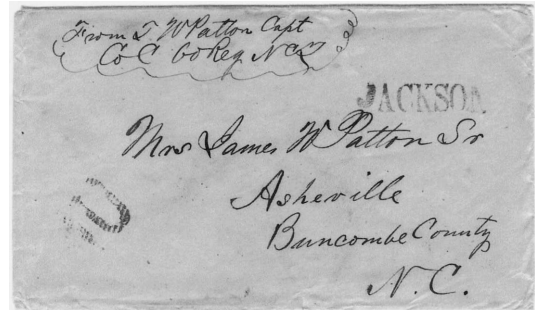 From T. W Patton Capt
Co. C 60 Reg N C
JACKSON
Mrs James W Patton Sr
Asheville
Buncombe County
N. C.
10